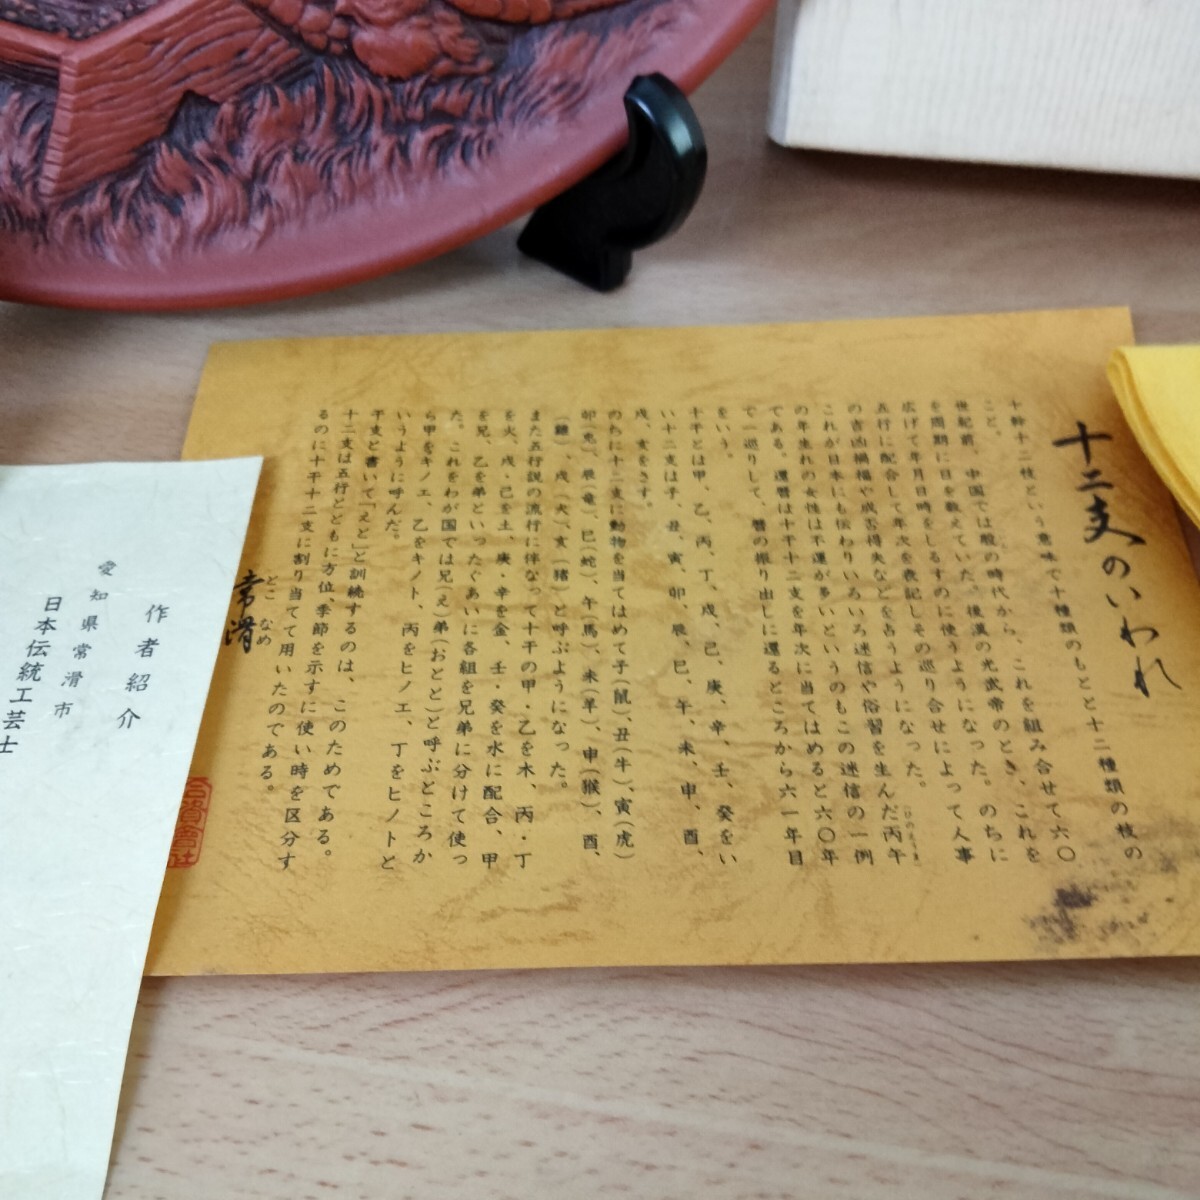 十二支のいわれ
十幹十二枝という意味で十種類のもとと十二種類の枝の
こと。
世紀前、中国では殷の時代から、これを組み合せて六〇
を周期に日を数えていた。後漢の光武帝のとき、これを
広げて年月日時をしるすのに使うようになった。のちに
五行に配合して年次を表記しその巡り合せによって人事
の吉凶禍福や成否得失などを占うようになった。
これが日本にも伝わりいろいろ迷信や俗習を生んだ丙午
の年生れの女性は不運が多いというのもこの迷信の一例
である。還暦は十干十二支を年次に当てはめると六〇年
で一巡りして、暦の振り出しに還るところから六一年目
をいう。
十干とは甲、乙、丙、丁、戊、己、庚、辛、壬、癸をい
い十二支は子、丑、寅、卯、辰、巳、午、未、申、酉、
戌、亥をさす。
のちに十二支に動物を当てはめて子(鼠)、丑(牛)、寅(虎)
卯(兎)、辰(竜)、巳(蛇)、午(馬)、未(羊)、申(猴)、酉、
(鶏)、戌(犬)、亥(猪)と呼ぶようになった。
また五行説の流行に伴なって十干の甲・乙を木、丙・丁
を火、戊・己を土、庚・辛を金、壬・癸を水に配合、甲
を兄、乙を弟といったぐあいに各組を兄弟に分けて使っ
た。これをわが国では兄(え)弟(おとと)と呼ぶところか
ら甲をキノエ、乙をキノト、丙をヒノエ、丁をヒノトと
いうように呼んだ。
干支と書いて「えと」と訓続するのは、このためである。
十二支は五行とともに方位、季節を示すに使い時を区分す
るのに十干十二支に割り当てて用いたのである。
常滑
とこなめ
作者紹介
愛知県常滑市
日本伝統工芸士